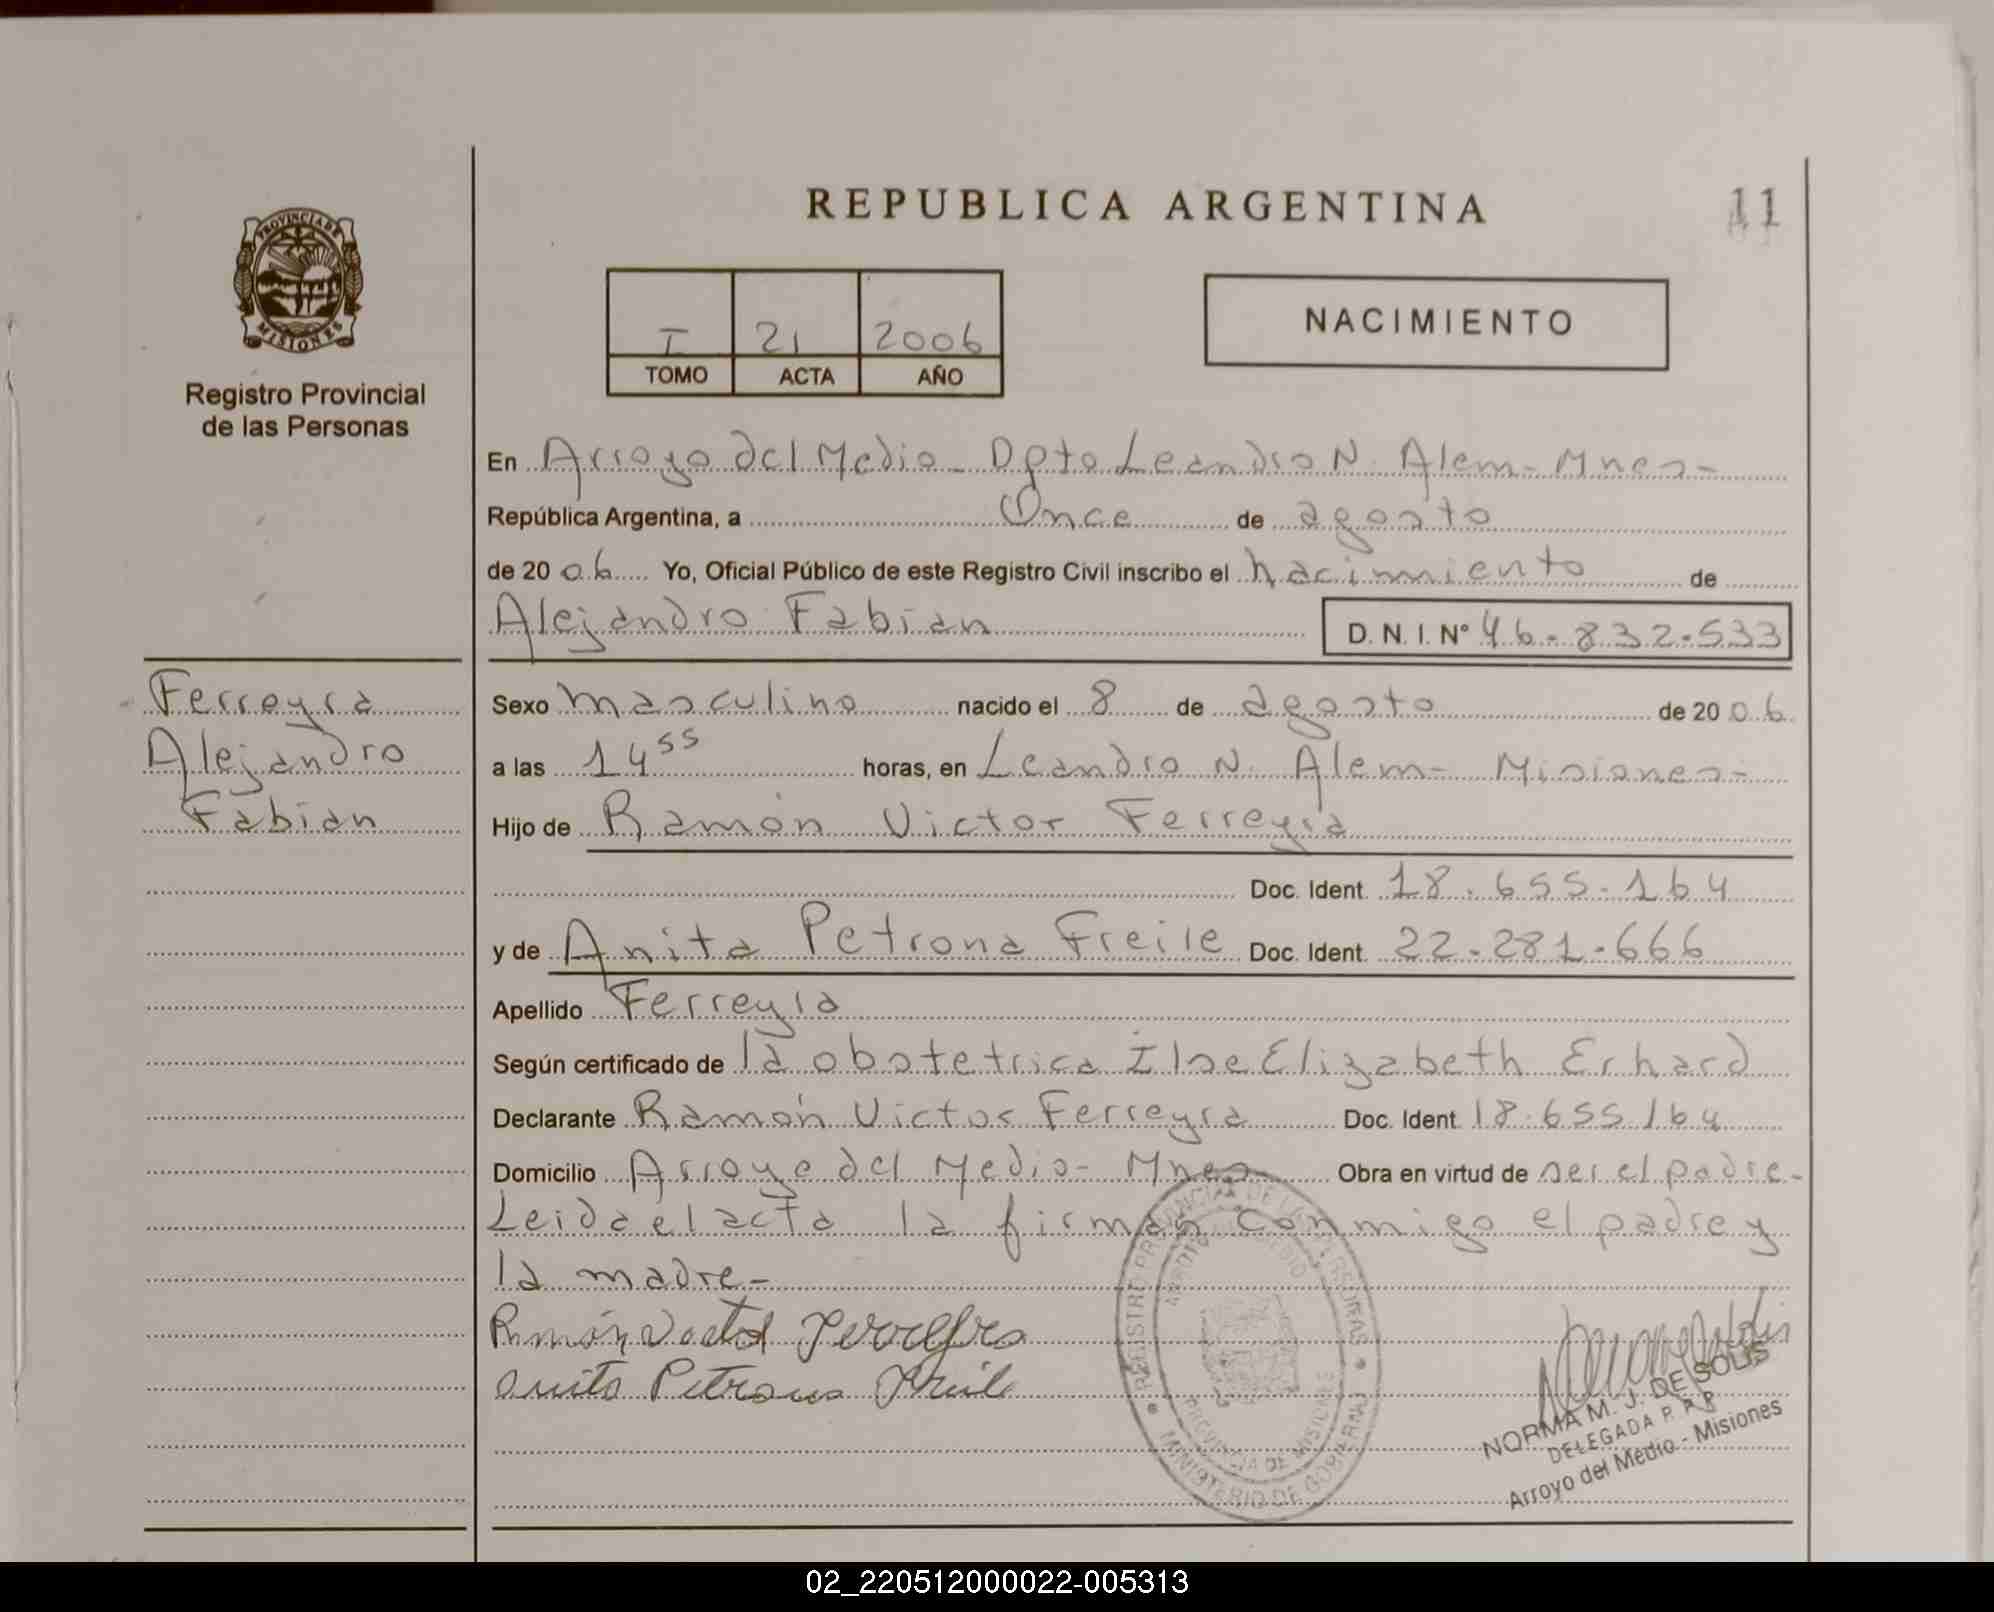 REPUBLICA ARGENTINA
11
PROVINCIA DE
MISIONES
Registro Provincial
de las Personas
I 21 2006
TOMO ACTA AÑO
NACIMIENTO
En Arroyo del Medio - Dpto Leandro N. Alem - Mnes -
República Argentina, a Once de agosto
de 20 06 Yo, Oficial Público de este Registro Civil inscribo el nacimiento de
Alejandro Fabian D. N. I. Nº 46.832.533
Ferreyra
Alejandro
Fabian
Sexo masculino nacido el 8 de agosto de 20 06
a las 14 55 horas, en Leandro N. Alem - Misiones -
Hijo de Ramón Victor Ferreyra
Doc. Ident. 18.655.164
y de Anita Petrona Freile Doc. Ident. 22.281.666
Apellido Ferreyra
Según certificado de la obstetrica Ilse Elizabeth Erhard
Declarante Ramón Victor Ferreyra Doc. Ident. 18.655164
Domicilio Arroyo del Medio - Mnes - Obra en virtud de ser el padre -
Leida el acta la firman conmigo el padre y
la madre -
Ramón Victor Ferreyra
Anita Petrona Freile
REGISTRO PROVINCIAL DE LAS PERSONAS
ARROYO DEL MEDIO
PROVINCIA DE MISIONES
MINISTERIO DE GOBIERNO
NORMA M. J. DE SOLIS
DELEGADA R. P. P.
Arroyo del Medio - Misiones
02_220512000022-005313